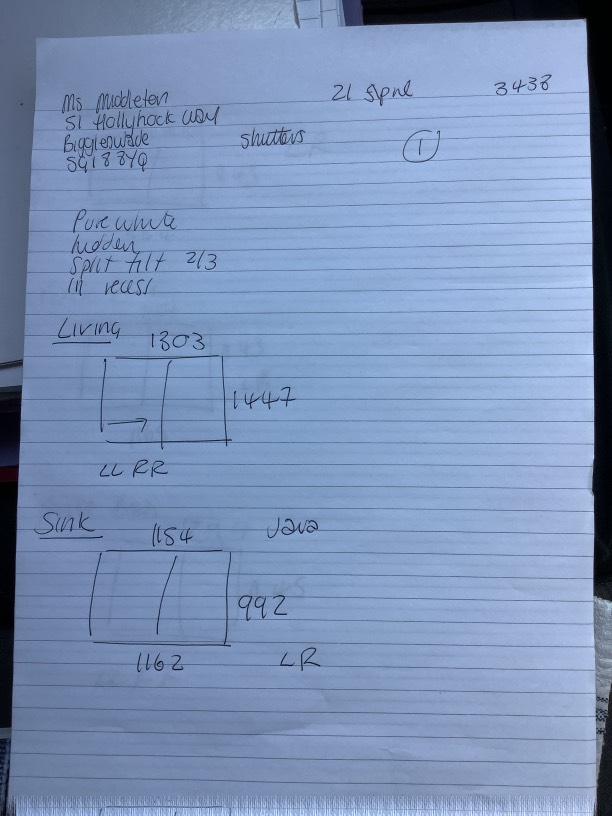 Ms Middleton 21 Spnl 3438
51 Hollyhock Way
Biggleswade Shutters 1
SG18 8YQ
Pure white
hidden
Split tilt 2/3
in recess
Living
1303
1447
LL RR
Sink
1154 Java
992
1162 LR